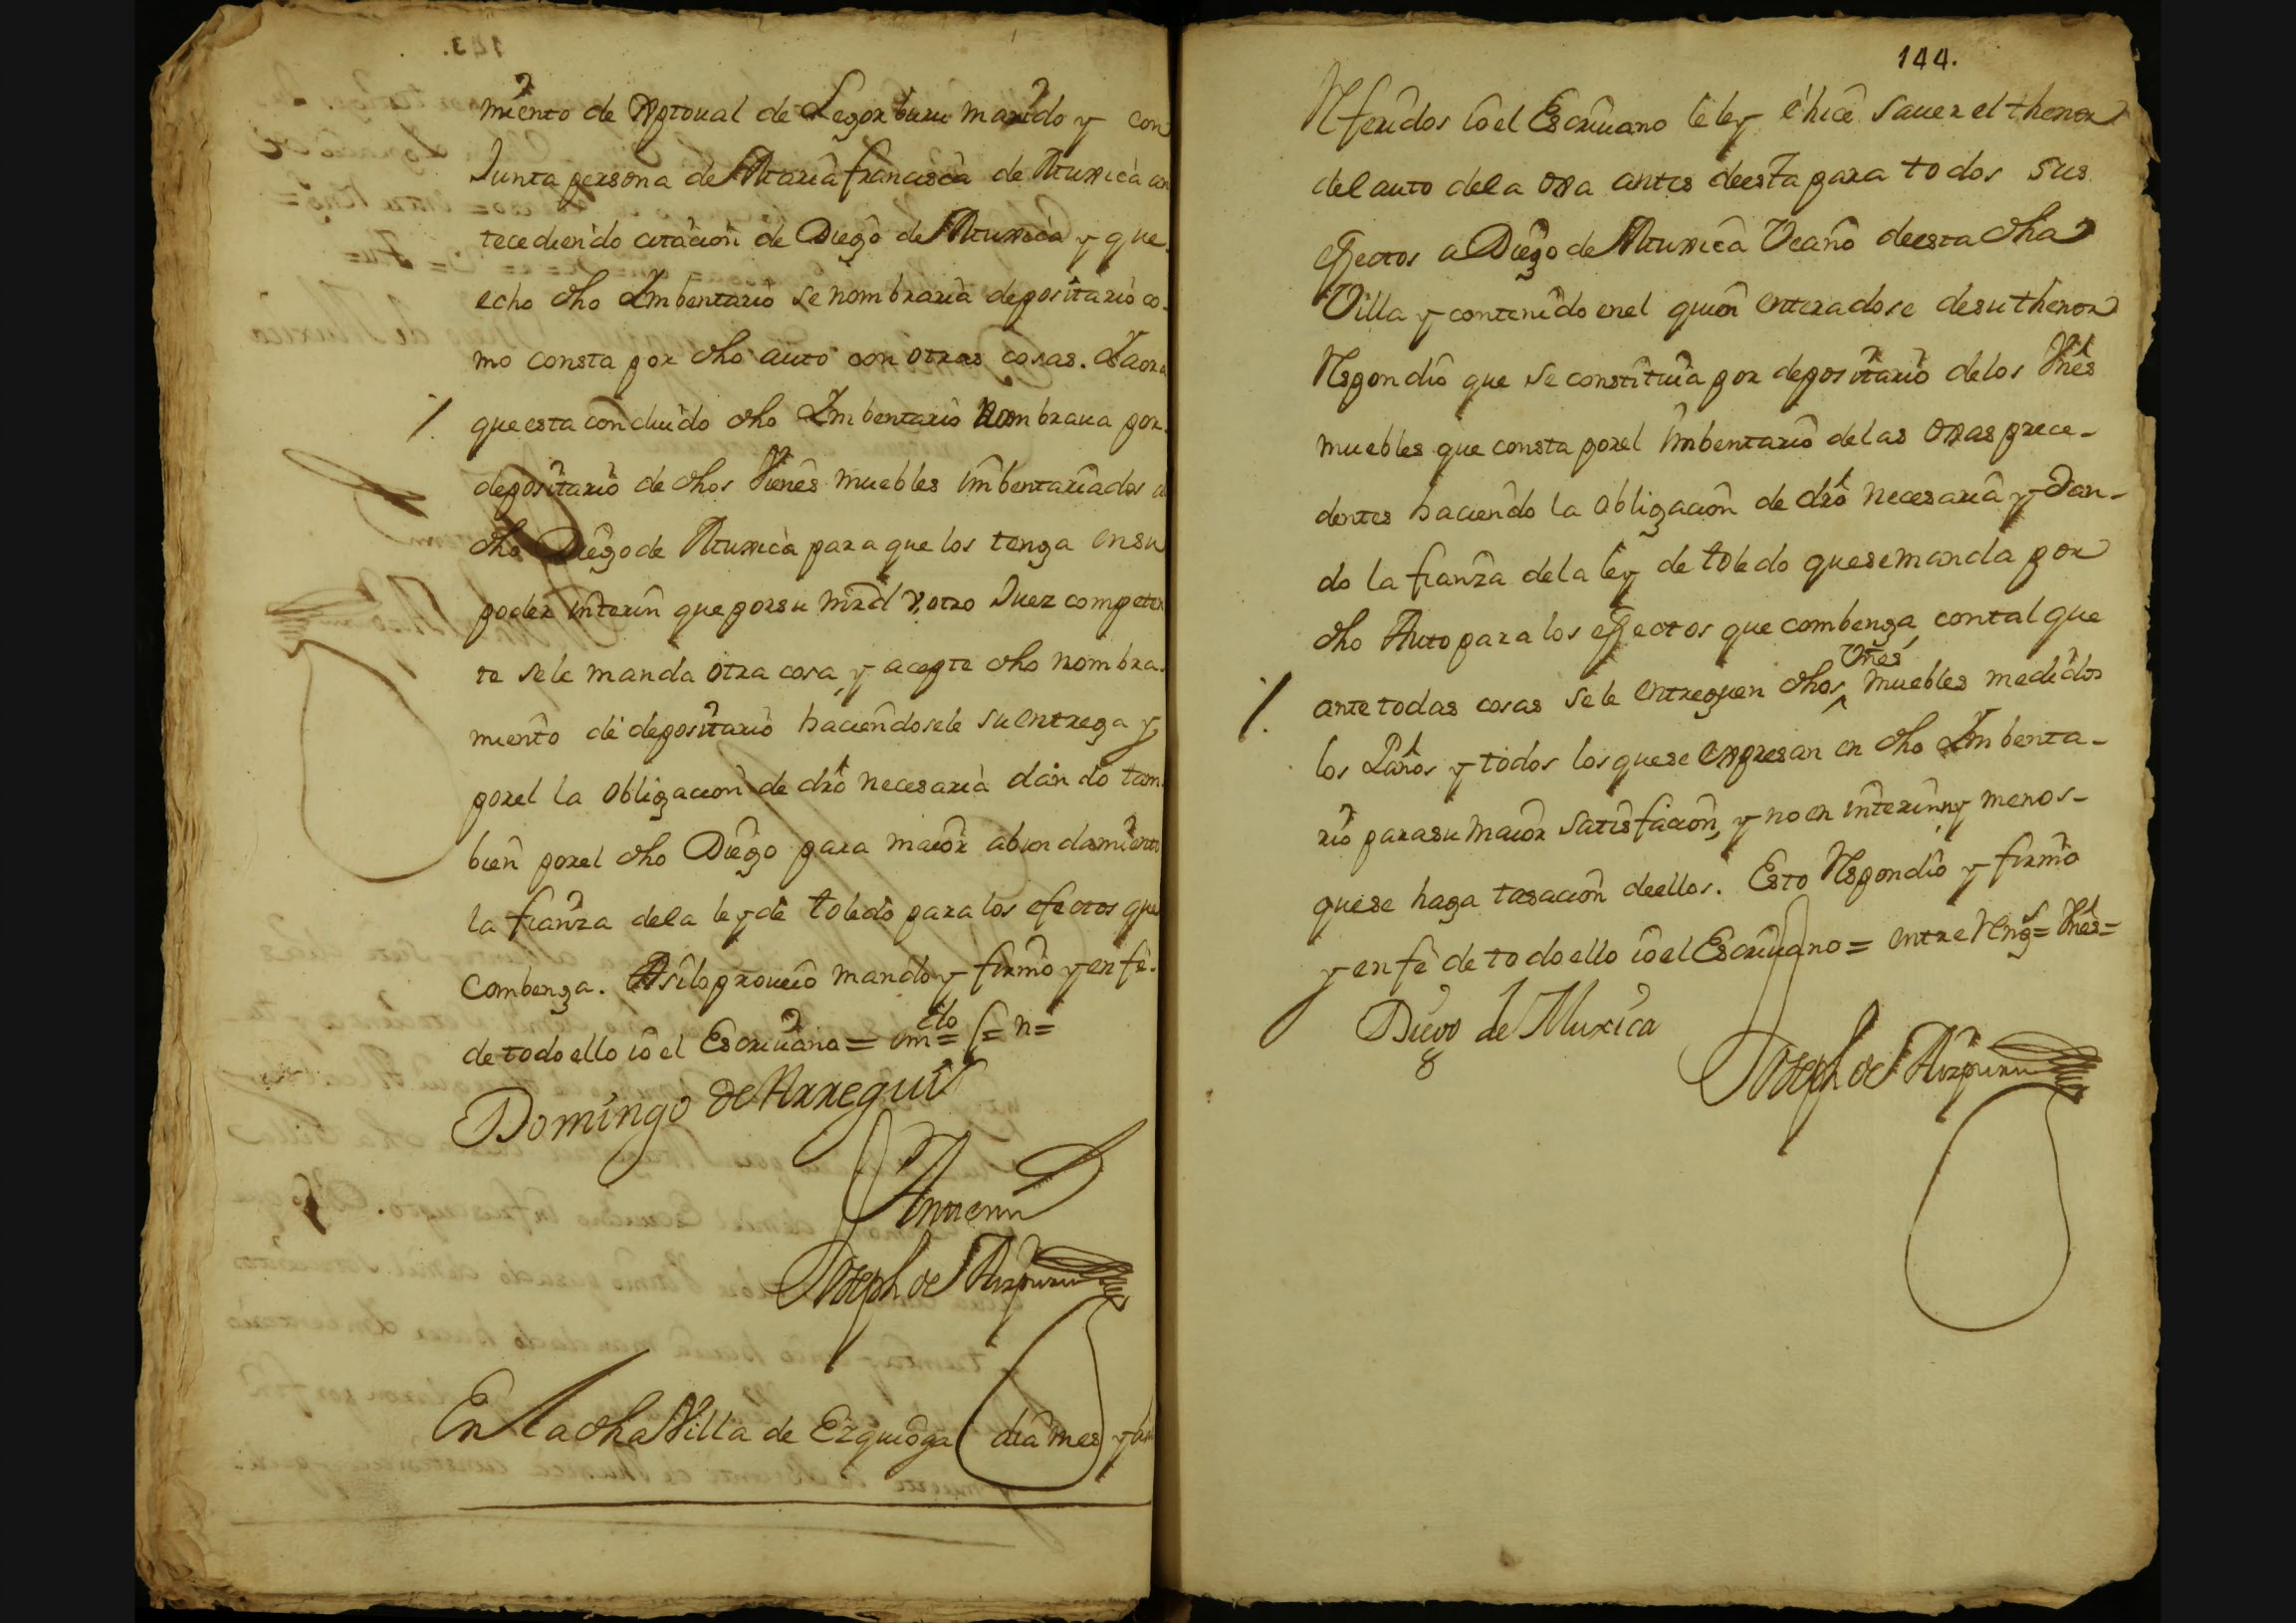 miento de Xptoual de Legorburu marido y con
Junta persona de Maria francisca de Muxica an
tecediendo citacion de Diego de Muxica y que
echo dho Imbentario se nombraria depositario co-
mo consta por dho auto con otras cosas. Y aora
que esta concluido dho Imbentario Nombraua por
depositario de dhos Vienes muebles imbentariados a
dho Diego de Muxica para que los tenga en su
poder interin que por su mrd v, otro Juez competen
te se le manda otra cosa, y acepte dho nombra-
miento de depositario haciendosele su entrega y
por el la obligacion de dro necesaria dando tam
bien por el dho Diego para maior abundamiento
la fianza de la ley de toledo para los efectos que
Combenga. Asi lo proueio mando y firmo y en fe
de todo ello io el Escriuano = em = do = s = n =
Domingo de Arregui
Antemi
Joseph de Aizpuru
En la dha Villa de Ezquioga dia mes y año
144.
Referidos io el Escriuano le ley é hice sauer el thenor
del auto de la oja antes de esta para todos sus
efectos a Diego de Muxica Vecino de esta dha
Villa y contenido en el quien enteradose de su thenor
Respondio que se constituia por depositario de los Vnes
muebles que consta por el imbentario de las ojas prece-
dentes haciendo la obligacion de dro necesaria y dan-
do la fianza de la ley de toledo que se manda por
dho Auto para los efectos que combenga, con tal que
ante todas cosas se le entreguen dhos Vnes muebles medidos
los Paños y todos los que se expresan en dho Imbenta-
rio para su maior satisfacion, y no en interin, y menos-
que se haga tasacion de ellos. Esto Respondio y firmo
y en fe de todo ello io el Escriuano = entre Rengs = Vnes =
Diego de Muxica
Joseph de Aizpuru